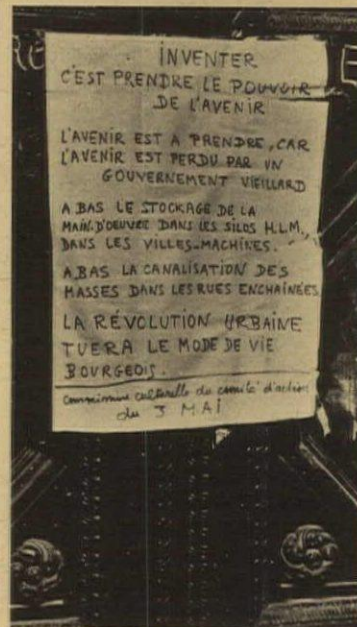 INVENTER
C'EST PRENDRE LE POUVOIR
DE L'AVENIR
L'AVENIR EST A PRENDRE, CAR
L'AVENIR EST PERDU PAR UN
GOUVERNEMENT VIEILLARD
A BAS LE STOCKAGE DE LA
MAIN.D'OEUVRE DANS LES SILOS H.L.M.,
DANS LES VILLES-MACHINES.
A BAS LA CANALISATION DES
MASSES DANS LES RUES ENCHAINÉES
LA RÉVOLUTION URBAINE
TUERA LE MODE DE VIE
BOURGEOIS.
commission culturelle du comité d'action
du 3 MAI